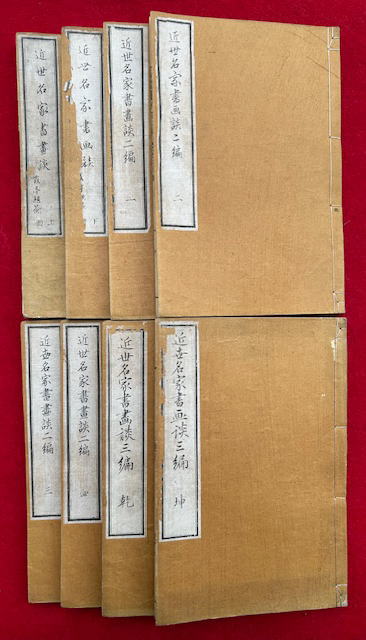 近世名家書畫談
上
近世名家書画談
下
近世名家書畫談二編
一
近世名家書画談二編
二
近世名家書畫談二編
三
近世名家書畫談二編
四
近世名家書畫談三編
乾
近世名家書画談三編
坤